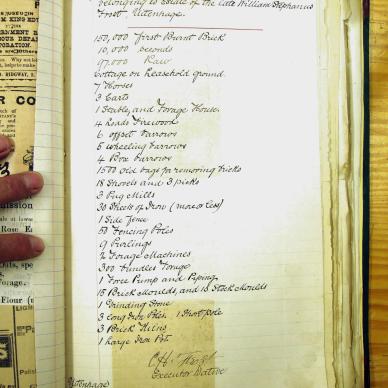 belonging to Estate of the late William Stephanus
Frost, Uitenhage.
150,000 first Burnt Brick
10,000 seconds
97,000 Raw
Cottage on leasehold ground.
7 Horses
3 Carts
1 Stable, and Forage House.
4 Loads Firewood
6 offset barrows
5 wheeling barrows
4 Box barrows
1500 old bags for removing bricks
18 Shovels and 3 picks
3 Pug Mills
30 Sheets of Iron (more or less)
1 Side Fence
50 Fencing Poles
9 Purlings
2 Forage Machines
300 bundles Forage
1 Force Pump and Piping.
15 Brick Moulds, and 13 Stock moulds
1 Grinding Stone
3 long Iron Poles, 1 Short pole
3 Brick Kilns
1 large Iron Pot
Executor Dative
Uitenhage
RIDGWAY,
CO
Rose E
Forage.
Flour (